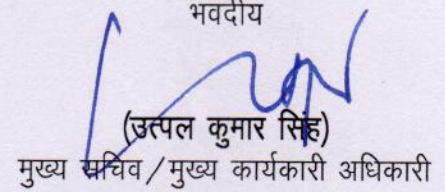 भवदीय
(उत्पल कुमार सिंह)
मुख्य सचिव/मुख्य कार्यकारी अधिकारी